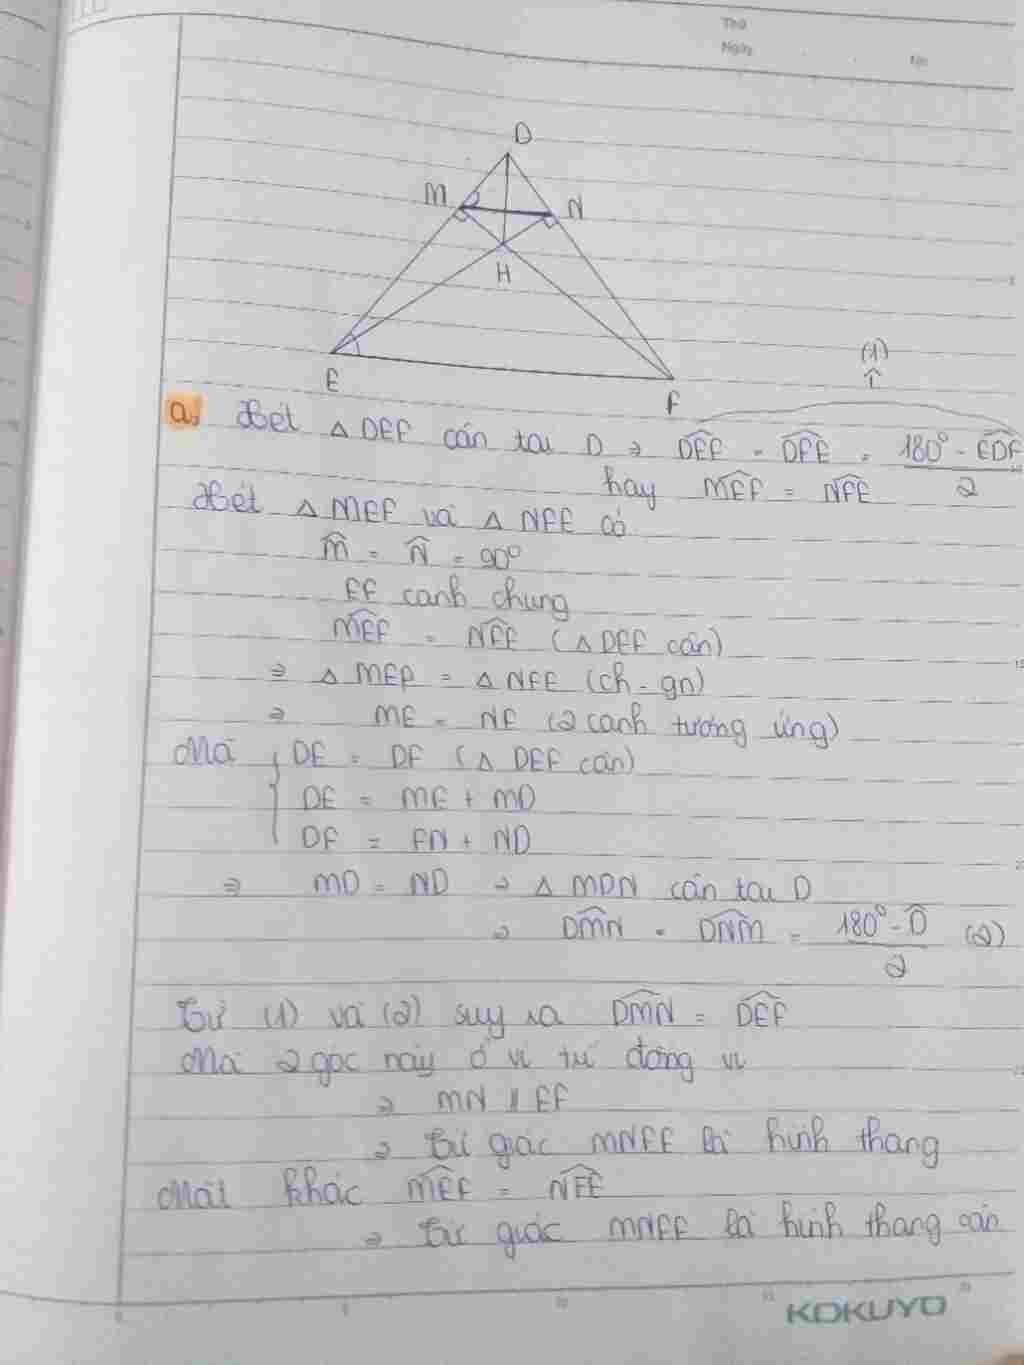 Thứ
Ngày
No.
D
M
N
H
E
F
(1)
a, Xét △ DEF cân tại D ⇒ \widehat{DEF} = \widehat{DFE} = \frac{180° - \widehat{EDF}}{2}
hay \widehat{MEF} = \widehat{NFE}
Xét △ MEF và △ NFE có
\widehat{M} = \widehat{N} = 90°
EF cạnh chung
\widehat{MEF} = \widehat{NFE} (△ DEF cân)
⇒ △ MEF = △ NFE (ch - gn)
⇒ ME = NF (2 cạnh tương ứng)
Mà { DE = DF (△ DEF cân)
DE = ME + MD
DF = FN + ND
⇒ MD = ND ⇒ △ MDN cân tại D
⇒ \widehat{DMN} = \widehat{DNM} = \frac{180° - \widehat{D}}{2} (2)
Từ (1) và (2) suy ra \widehat{DMN} = \widehat{DEF}
Mà 2 góc này ở vị trí đồng vị
⇒ MN // EF
⇒ Tứ giác MNFE là hình thang
Mặt khác \widehat{MEF} = \widehat{NFE}
⇒ Tứ giác MNFE là hình thang cân
KOKUYO